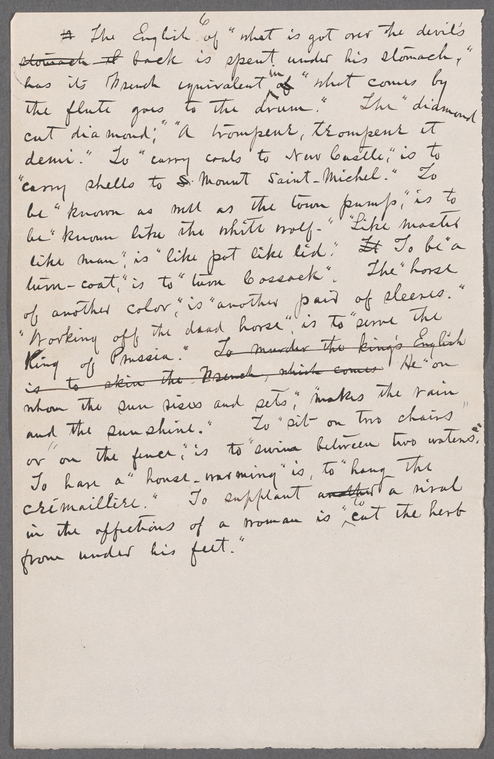 The English of "what is got over the devil's
stomach it back is spent under his stomach,"
has its French equivalent in of "what comes by
the flute goes to the drum." The "diamond
cut diamond," "A trompeur, trompeur et
demi." To "carry coals to New Castle," is to
"carry shells to S Mount Saint-Michel." To
be "known as well as the town pump," is to
be "known like the white wolf." "Like master
like man," is "like pot like lid." It To be "a
turn-coat," is to "turn Cossack". The "horse
of another color," is "another pair of sleeves."
"Working off the dead horse," is to "serve the
King of Prussia." To murder the king's English
is to skin the French, which comes He "on
whom the sun rises and sets," "makes the rain
and the sunshine." To "sit on two chairs"
or "on the fence," is to "swim between two waters."
To have a "house-warming" is, to "hang the
crémaillère." To supplant another a rival
in the affections of a woman is "to cut the herb
from under his feet."